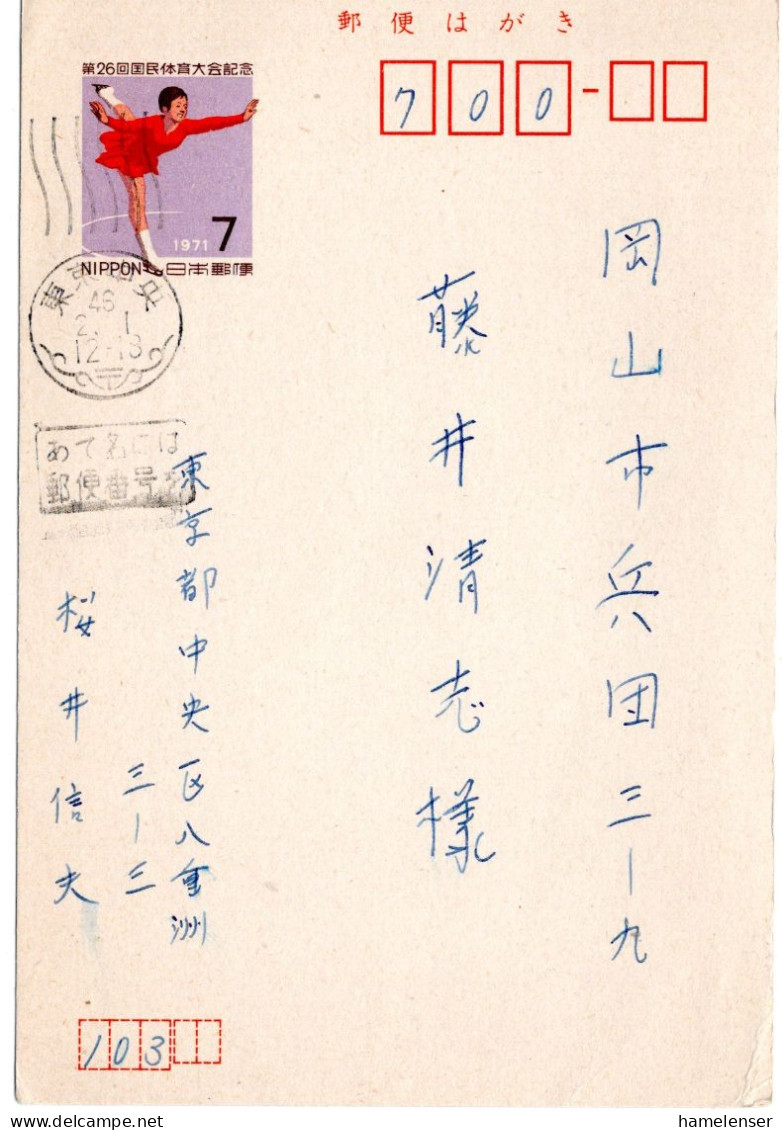 郵便はがき
第26回国民体育大会記念
1971 7
NIPPON 日本郵便
700-
東京中央
46
2. 1
12-18
あて名には
郵便番号を
岡山市兵団三ー九
藤井清志様
東京都中央区八重洲
三ー三
桜井信夫
103
hamelenser